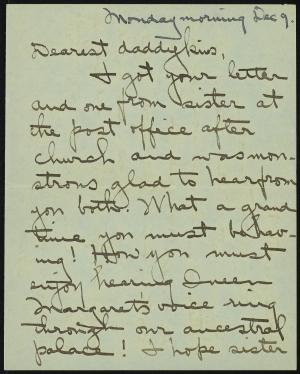 Monday morning Dec 9.
Dearest daddykins,
I got your letter
and one from sister at
the post office after
church and was mon-
strous glad to hear from
you both. What a grand
time you must be hav-
ing! How you must
enjoy hearing Queen
Margaret's voice ring
through our ancestral
palace! I hope sister